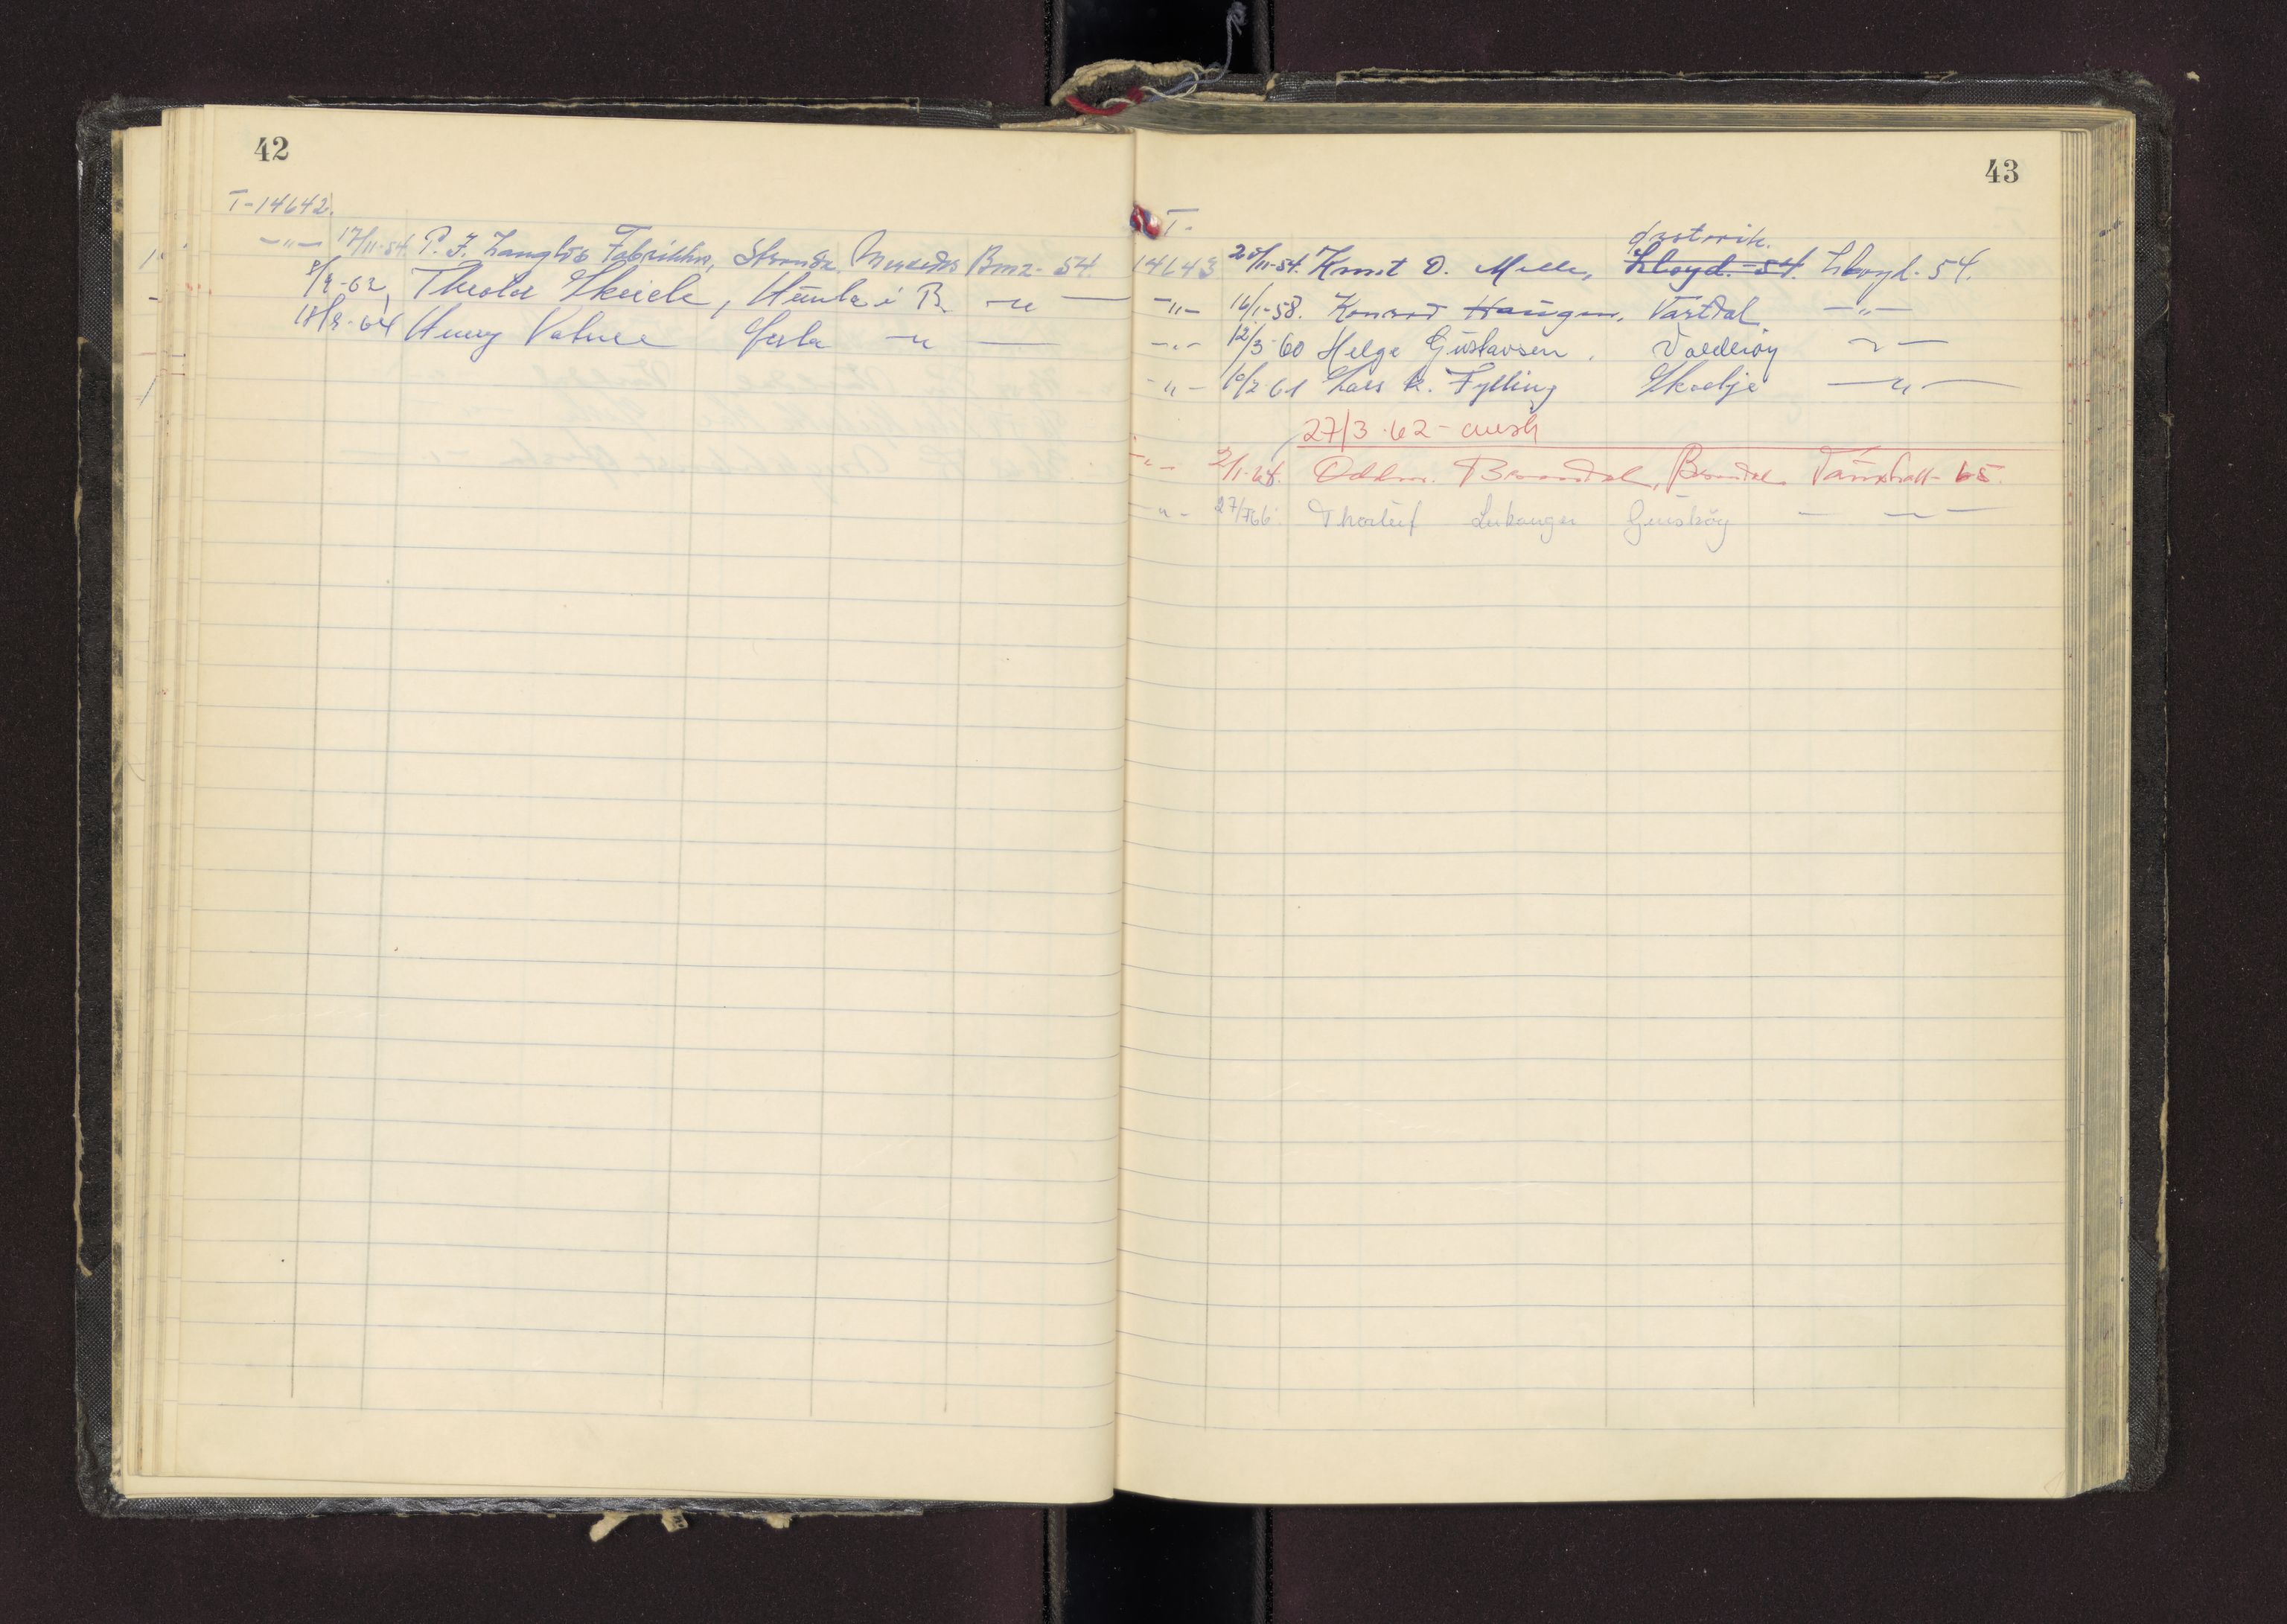 42
T-14642.
-"- 17/11-54. P. I. Langlos Fabrikker, Stranda. Mercedes Benz- 54
8/9-62, Theolor Skeide, Humla i B. -"-
18/9-64 Henry Vatnee Gerla -"-
43
T-
Ørstavik.
14643 20/11-54. Knut O. Melle, Lloyd.-54. Lloyd.-54.
-"- 16/1-58. Konrad Haugen, Vartdal -"-
-"- 12/3-60 Helge Gustavsen. Valderöy -"-
-"- 10/2 61 Lars K. Fylling Skodje -"-
27/3-62-
-"- 2/1-65. Oddm. Brandal, Brandal. Vauxhall- 65.
-"- 27/766. Thorleif Leikanger Gursköy - " -